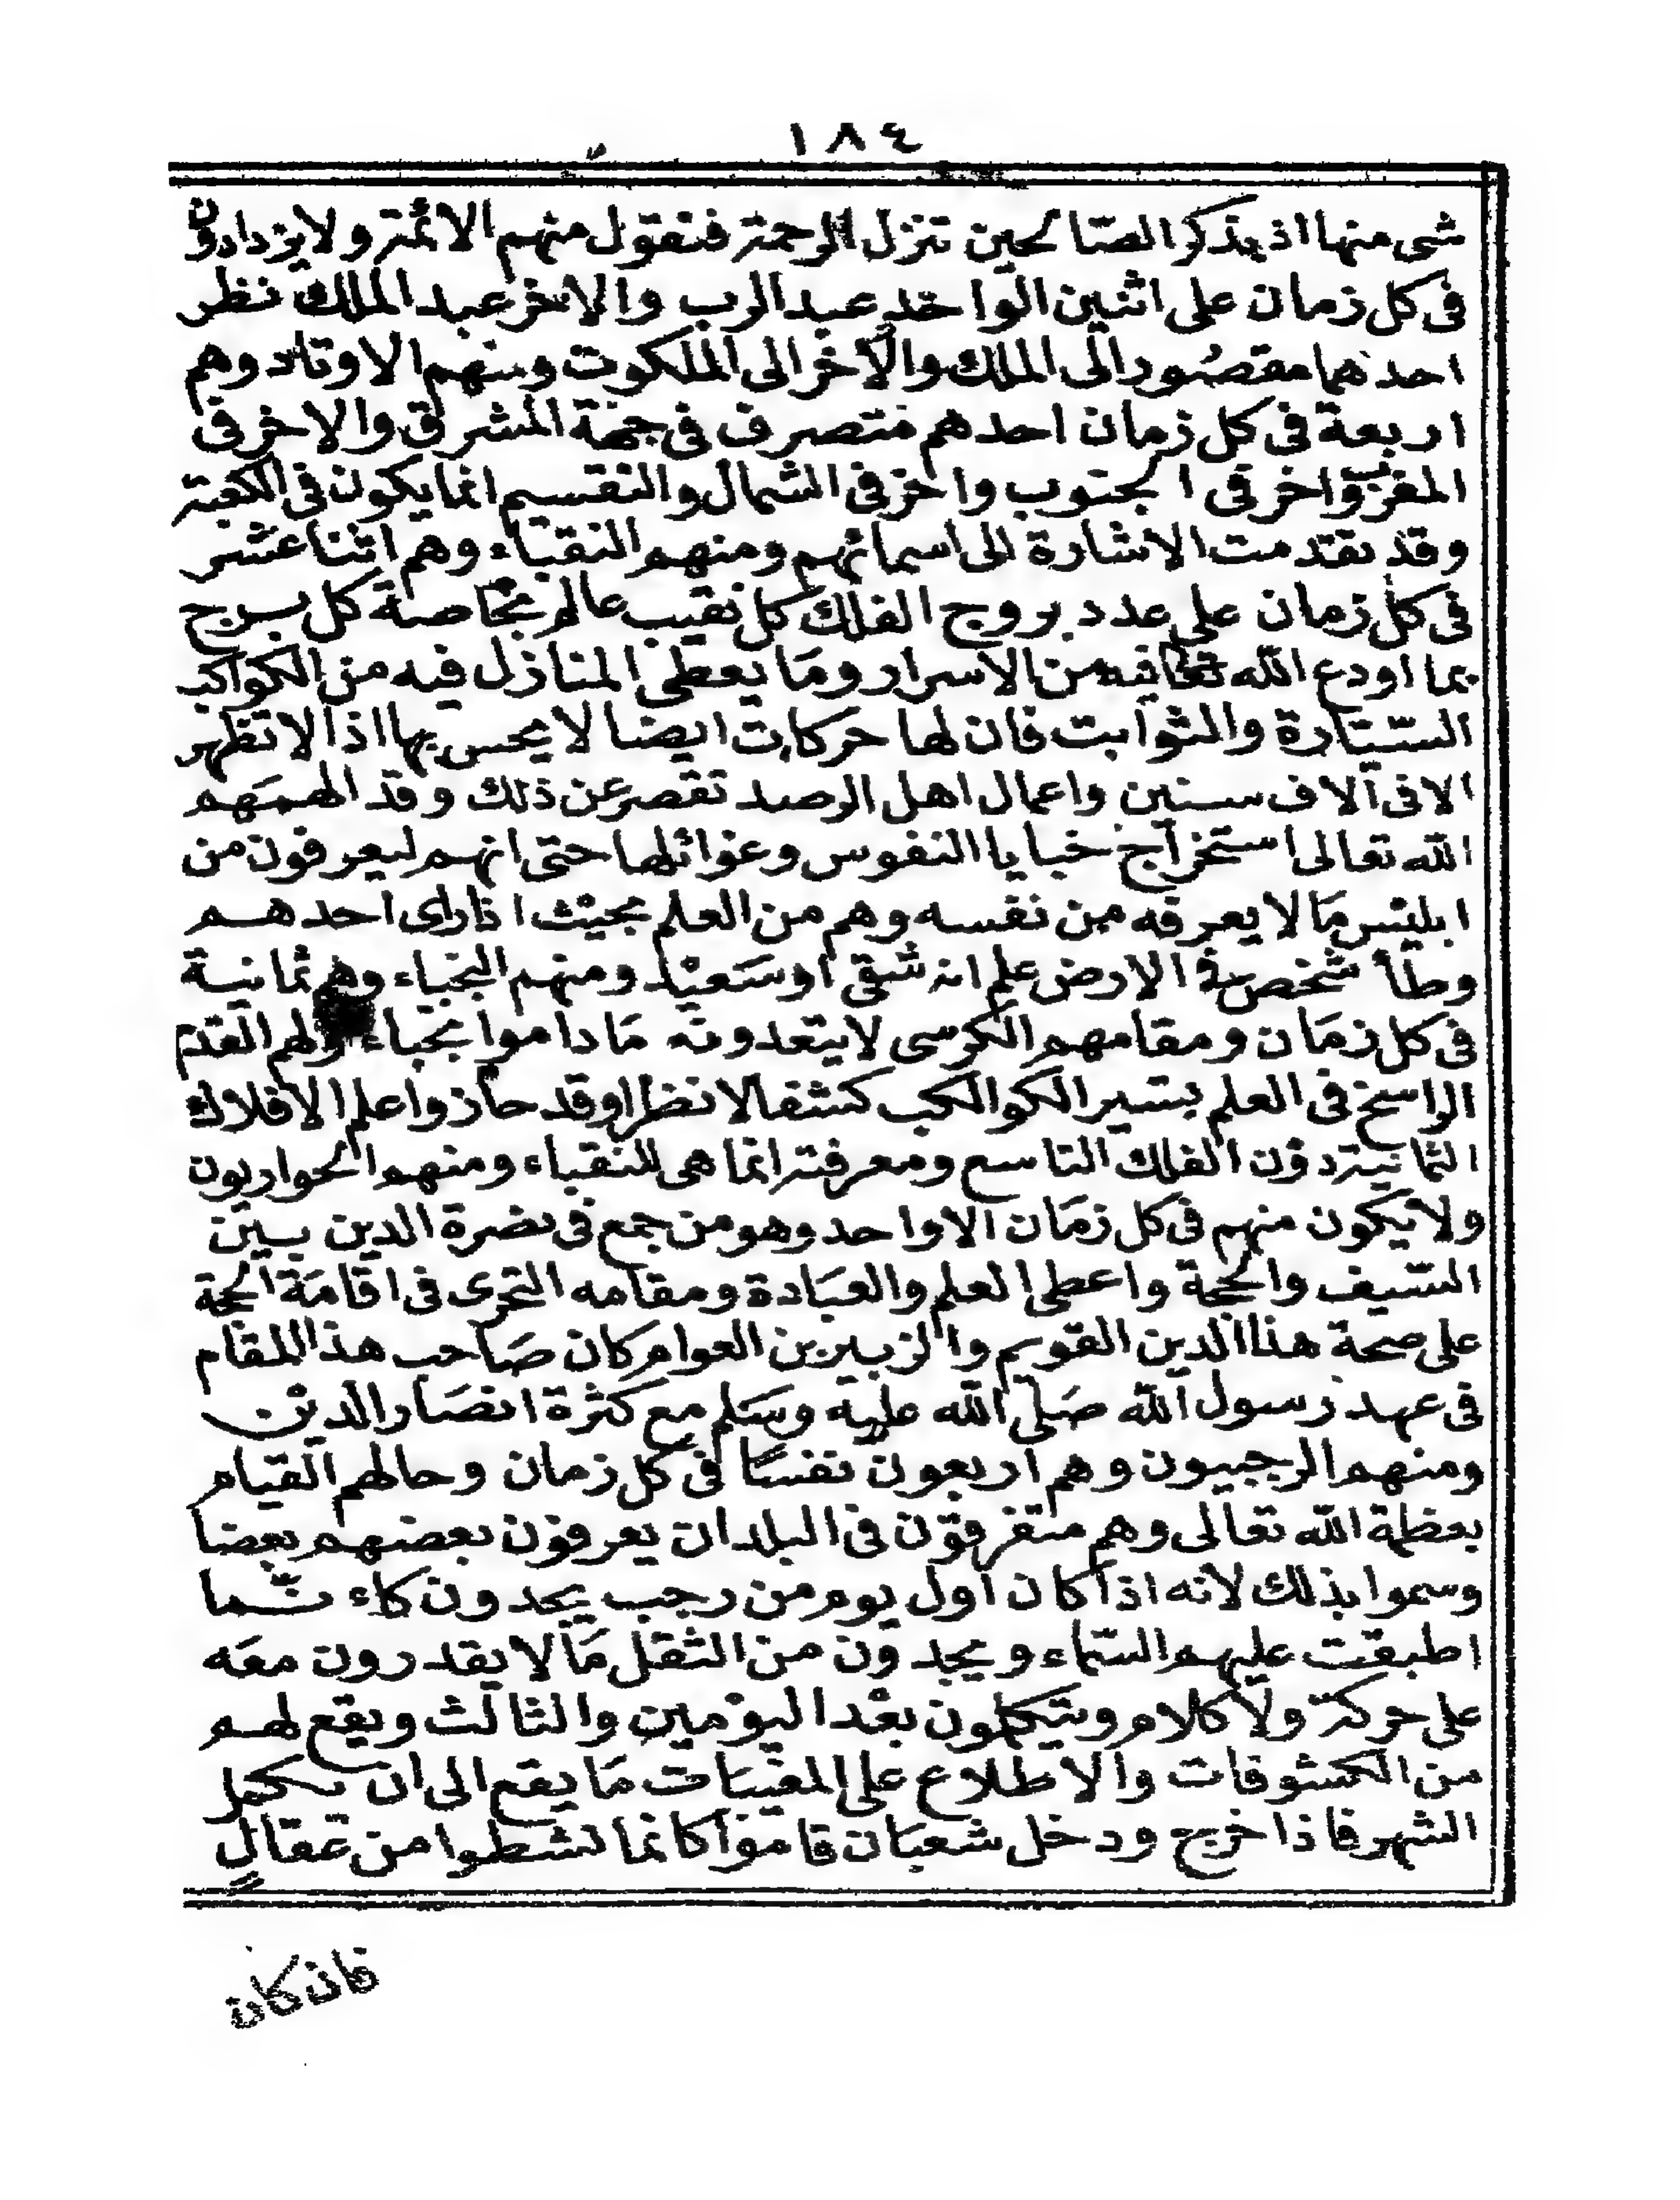 ١٨٤
شى منها اذ بذكر الصّالحين تنزل الرحمة فنقول منهم الائمة ولا يزدادون
فى كل زمان على اثنين الواحد عبد الرب والاخر عبد الملك نظر
احدهما مقصُور الى الملك والاخر الى الملكوت ومنهم الاوتاد وهم
اربعة فى كل زمان احدهم متصرف فى جهة المشرق والاخر فى
المغرب واخر فى الجنوب واخر فى الشمال والتقسيم انما يكون فى الكعبة
وقد تقدمت الاشارة الى اسمائهم ومنهم النقباء وهم اثنا عشر
فى كل زمان على عدد بروج الفلك كل نقيب عالم بخاصة كل برج
بما اودع الله تعالى فيه من الاسرار ومَا يعطى المنازل فيه من الكواكب
السّيّارة والثوابت فان لها حركات ايضا لا يحس بها اذ لا تظهر
الا فى آلاف سنين واعمال اهل الرصد تقصر عن ذلك وقد الهمَهم
الله تعالى استخراج خبايا النفوس وغوائلها حتى انهم ليعرفون من
ابليس مَا لا يعرفه من نفسه وهم من العلم بحيث اذا راى احدهم
وطأ شخص فى الارض علم انه شقى او سَعيْد ومنهم النجباء وهم ثمانية
فى كل زمَان ومقامهم الكرسى لا يتعدونه مَا داموا نجباء ولهم القدم
الراسخ فى العلم بتسيير الكواكب كشفا لا نظرا وقد حازوا علم الافلاك
الثمانية دوْن الفلك التاسع ومعرفته انما هى للنقباء ومنهم الحواريون
ولا يكون منهم فى كل زمَان الا واحد وهو من جمع فى نصرة الدين بين
السّيف والحجة واعطى العلم والعبَادة ومقامه التحرى فى اقامَة الحجة
على صحة هذا الدين القويم والزبير بن العوام كان صَاحب هذا المقام
فى عهد رسول الله صَلى الله عليه وسَلم مع كثرة انصَار الدين
ومنهم الرجبيون وهم اربعون نفسًا فى كل زمان وحالهم القيام
بعظمة الله تعالى وهم متفرقوْن فى البلدان يعرفون بعضهم بعضا
وسموا بذلك لانه اذا كان اول يوم من رجب يجدون كاء نّما
اطبقت عليهم السّماء ويجدوْن من الثقل مَا لا يقدرون معَه
على حركة ولا كلام ويتكلمون بعْد اليوْمين والثالث ويقع لهم
من الكشوفات والاطلاع على المغيبَات مَا يقع الى ان يكمل
الشهر فاذا خرج ودخل شعبَان قاموْا كانما نشطوا من عقالٍ
فان كان